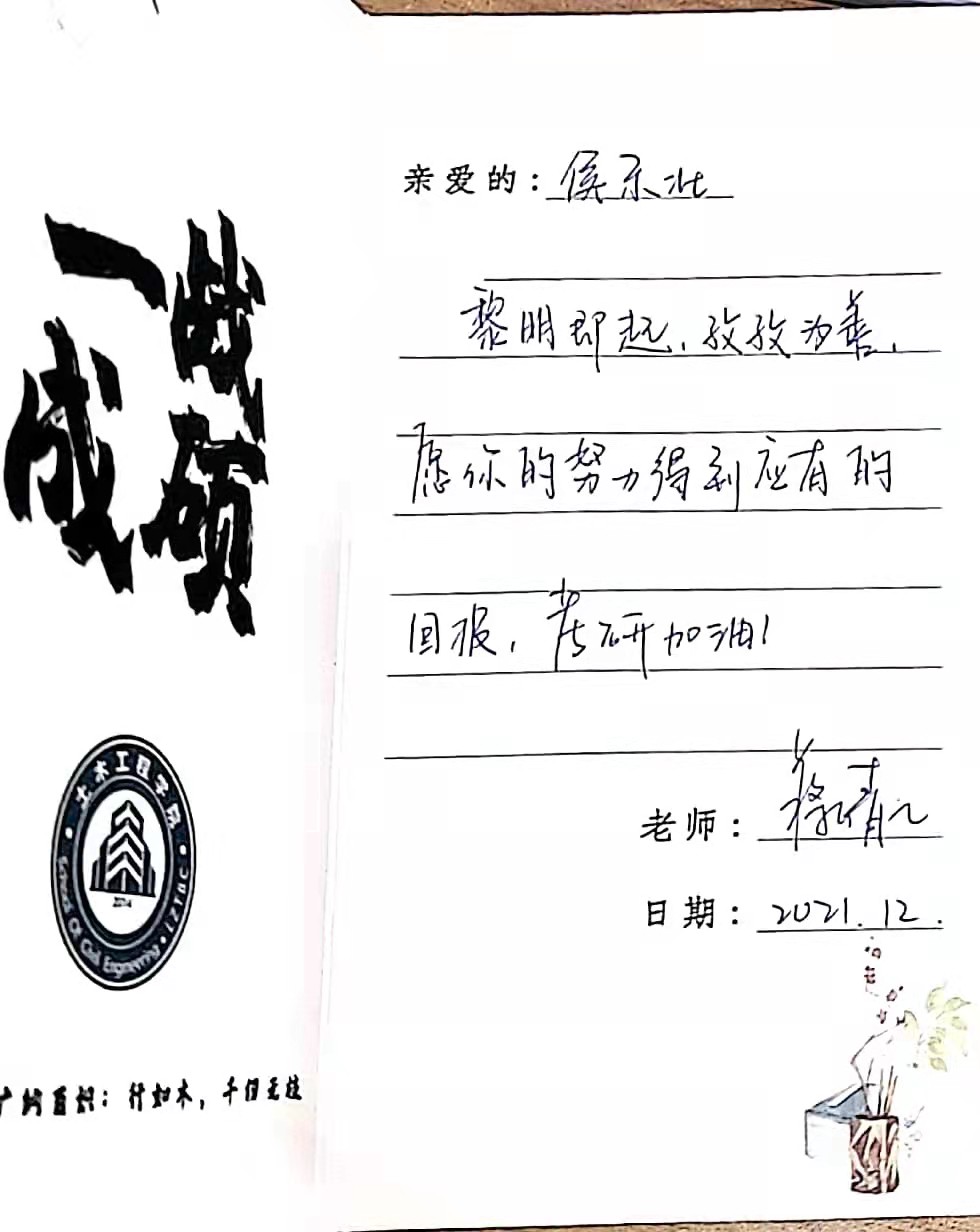 一战
成硕
土木工程学院
2014
School Of Civil Engineering · LZTBC
行如木，千仞无枝
亲爱的：侯东北
黎明即起，孜孜为善，
愿你的努力得到应有的
回报，考研加油！
老师：
日期：2021.12.